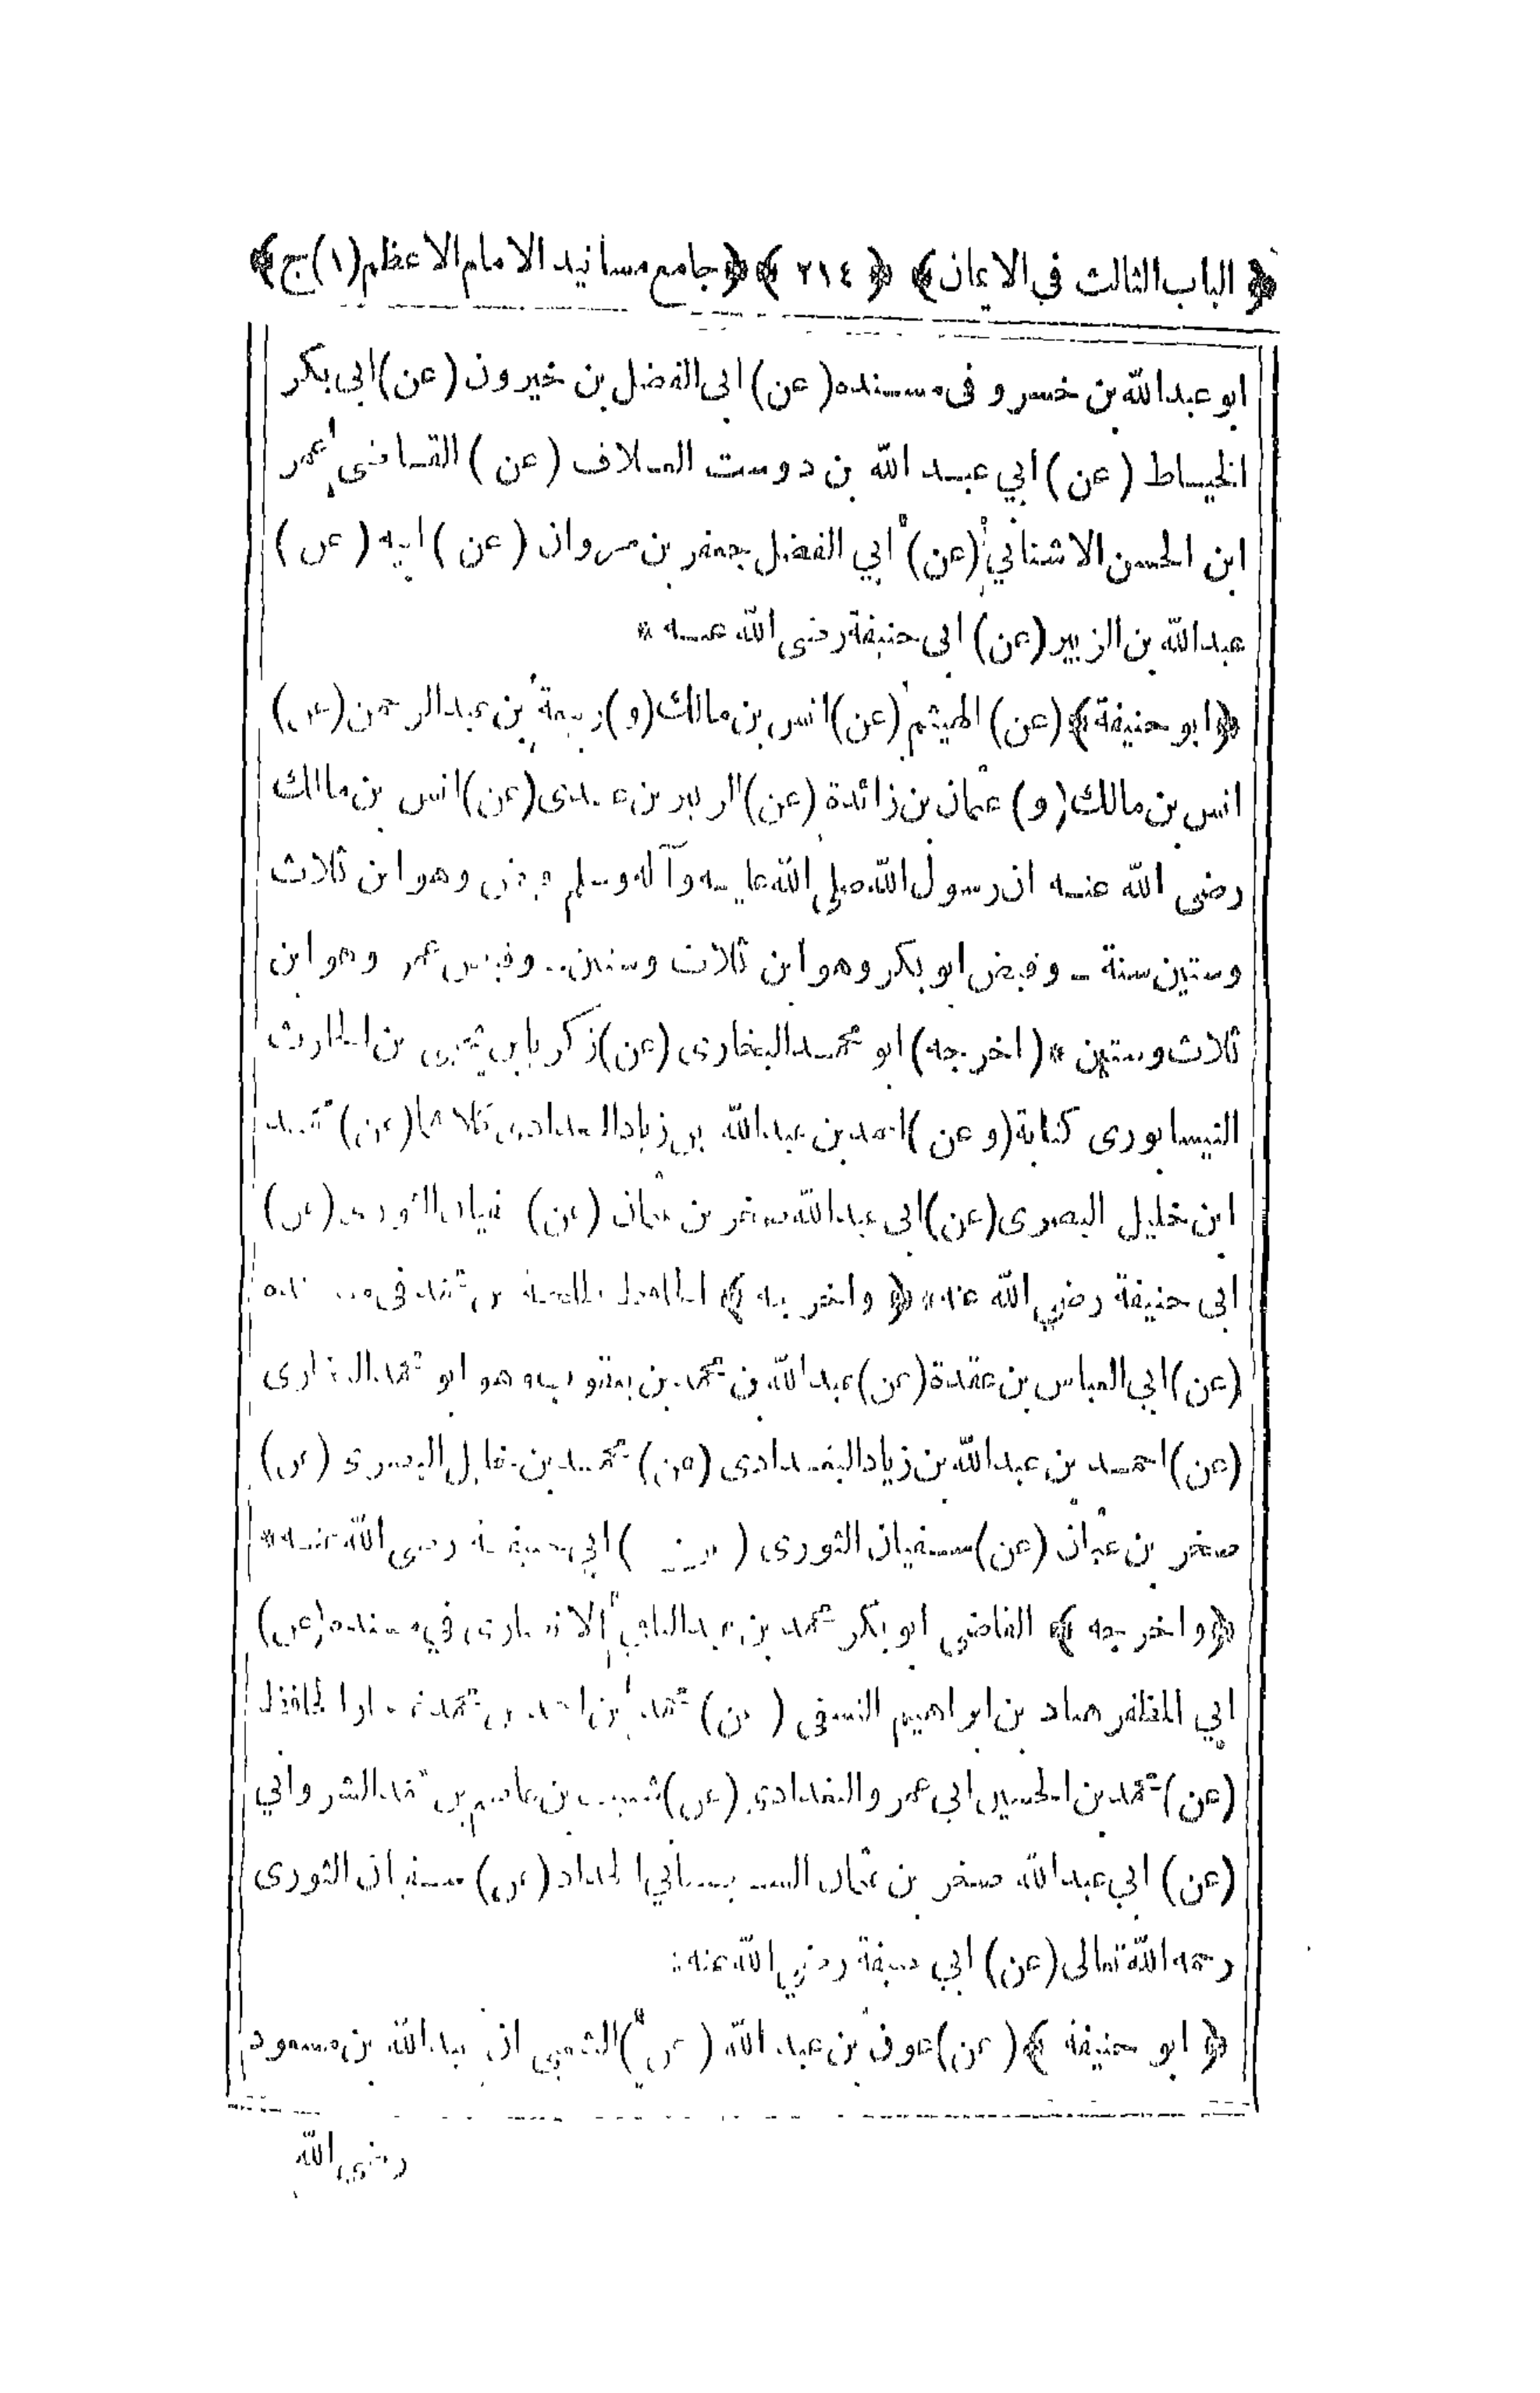 ﴿ الباب الثالث في الايمان ﴾ ﴿ ٢١٤ ﴾ ﴿ جامع مسانيد الامام الاعظم (١) ج ﴾
ابو عبدالله بن خسرو فى مسنده (عن) ابى الفضل بن خيرون (عن) ابى بكر
الخياط (عن) ابي عبد الله بن دوست العلاف (عن) القاضى عمر
ابن الحسن الاشناني (عن) ابي الفضل جعفر بن مروان (عن) ابيه (عن)
عبدالله بن الزبير (عن) ابى حنيفة رضى الله عنه *
﴿ ابو حنيفة ﴾ (عن) الهيثم (عن) انس بن مالك (و) ربيعة بن عبدالرحمن (عن)
انس بن مالك (و) عثمان بن زائدة (عن) الزبير بن عدى (عن) انس بن مالك
رضى الله عنه ان رسول الله صلى الله عليه وآله وسلم قبض وهو ابن ثلاث
وستين سنة - وقبض ابو بكر وهو ابن ثلاث وستين - وقبض عمر وهو ابن
ثلاث وستين * (اخرجه) ابو محمد البخارى (عن) زكريا بن يحيى بن الحارث
النيسابورى كتابة (وعن) احمد بن عبدالله بن زياد البغدادى كلاهما (عن) محمد
ابن خليل البصرى (عن) ابى عبدالله صخر بن عثمان (عن) سفيان الثورى (عن)
ابى حنيفة رضي الله عنه * ﴿ واخرجه ﴾ الحافظ طلحة بن محمد فى مسنده
(عن) ابي العباس بن عقدة (عن) عبدالله بن محمد بن يعقوب وهو ابو محمد البخارى
(عن) احمد بن عبدالله بن زياد البغدادى (عن) محمد بن خليل البصرى (عن)
صخر بن عثمان (عن) سفيان الثورى (عن) ابي حنيفة رضى الله عنه *
﴿ واخرجه ﴾ القاضي ابو بكر محمد بن عبدالباقي الانصارى في مسنده (عن)
ابي المظفر هناد بن ابراهيم النسفى (عن) محمد بن احمد بن محمد الحافظ
(عن) محمد بن الحسين ابى عمرو البغدادى (عن) شعيب بن عاصم بن محمد الشروانى
(عن) ابي عبدالله صخر بن عثمان الحداد (عن) سفيان الثورى
رحمه الله تعالى (عن) ابي حنيفة رضي الله عنه *
﴿ ابو حنيفة ﴾ (عن) عوف بن عبد الله (عن) الشعبي ان عبدالله بن مسعود
رضي الله